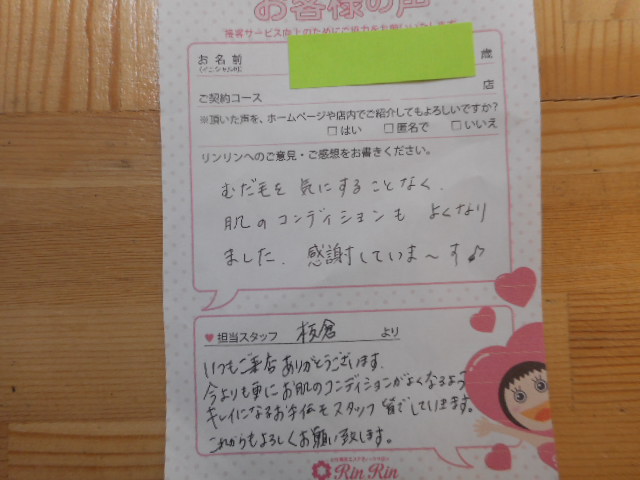 お客様の声
接客サービス向上のためにご協力をお願いいたします
お名前
(イニシャル可)
歳
ご契約コース
店
※頂いた声を、ホームページや店内でご紹介してもよろしいですか?
□はい □匿名で □いいえ
リンリンへのご意見・ご感想をお書きください。
むだ毛を気にすることなく、
肌のコンディションも よくなり
ました。感謝していま〜す♪
♥担当スタッフ 板倉 より
いつもご来店ありがとうございます。
今よりも更にお肌のコンディションがよくなるよう
キレイになるお手伝をスタッフ皆でしていきます。
これからもよろしくお願い致します。
Rin Rin